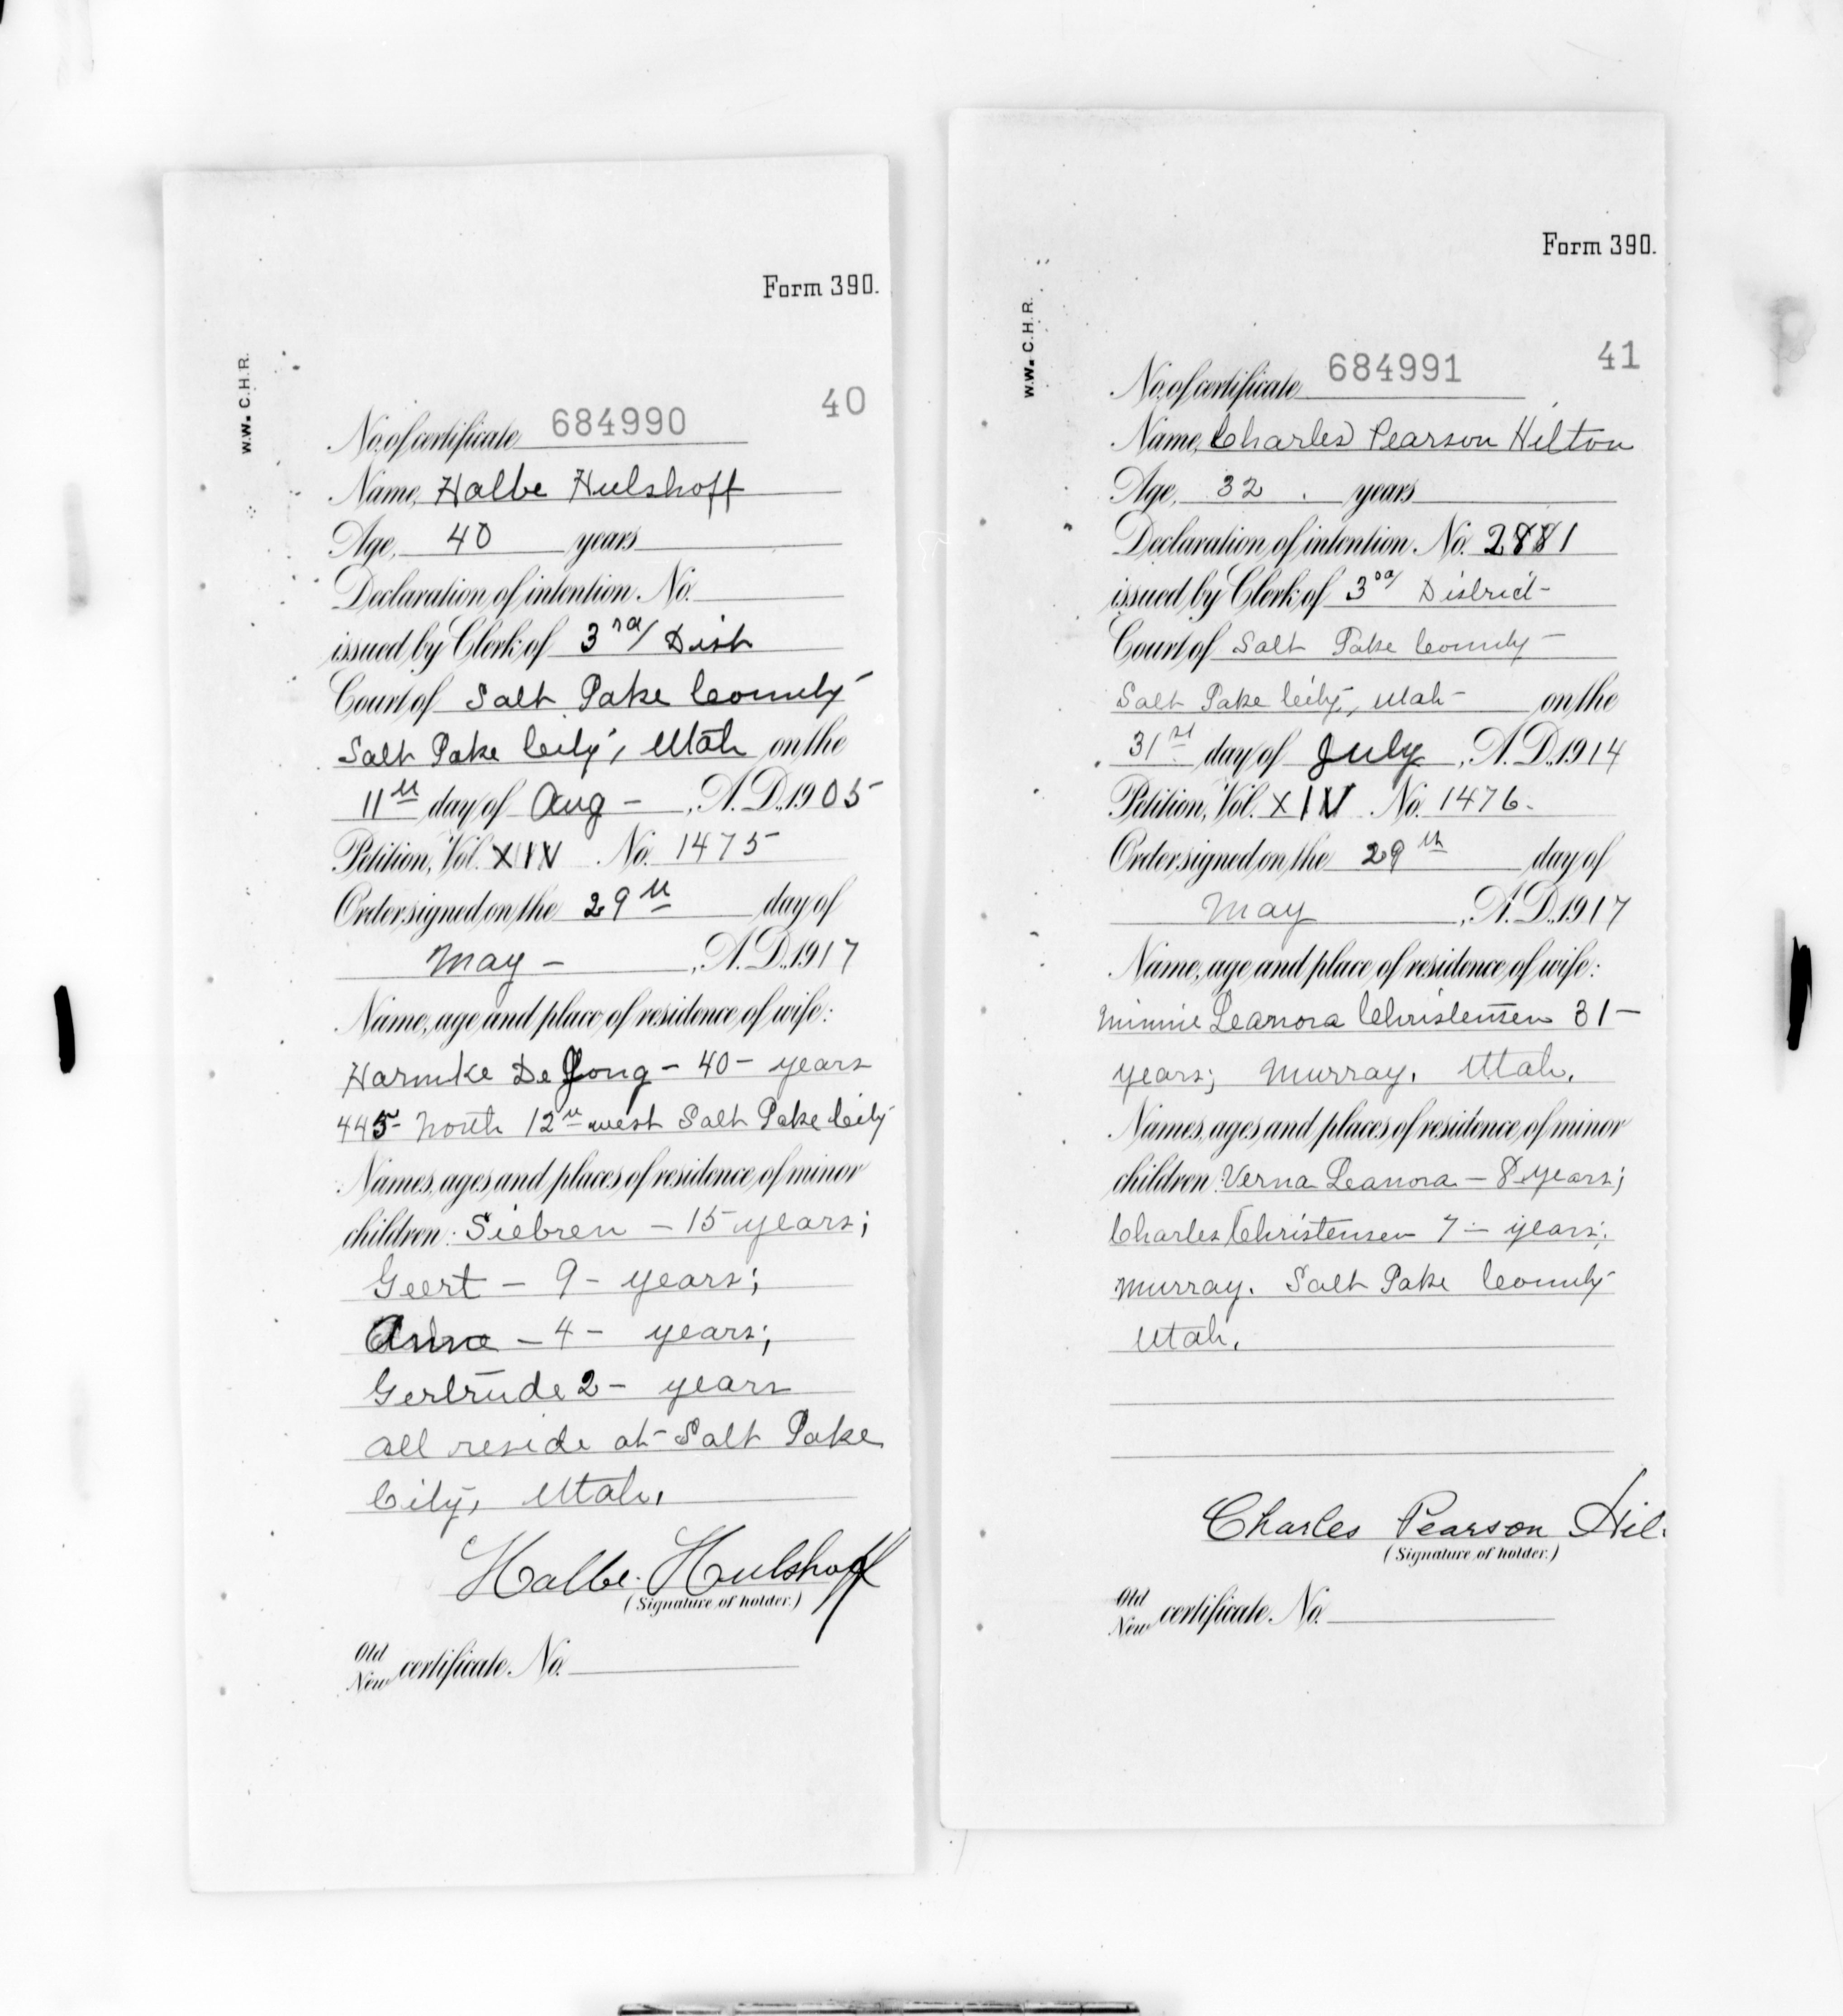 Form 390.
W.W. C.H.R.
40
No. of certificate 684990
Name, Halbe Hulshoff
Age, 40 years
Declaration of intention No.
issued by Clerk of 3rd Dist
Court of Salt Lake County
Salt Lake City, Utah on the
11th day of Aug - , A.D. 1905
Petition, Vol. XIV No. 1475
Order signed on the 29th day of
May - , A.D. 1917
Name, age and place of residence of wife:
Harmke De Jong - 40 - years
445 North 12th west Salt Lake City
Names, ages and places of residence of minor
children: Siebren - 15 years;
Geert - 9 - years;
Anna - 4 - years;
Gertrude 2 - years
all reside at Salt Lake
City, Utah.
Halbe Hulshoff
(Signature of holder.)
Old
New certificate No.
Form 390.
W.W. C.H.R.
41
No. of certificate 684991
Name, Charles Pearson Hilton
Age, 32 years
Declaration of intention No. 2881
issued by Clerk of 3rd District
Court of Salt Lake County
Salt Lake City, Utah on the
31st day of July , A.D. 1914
Petition, Vol. XIV No. 1476
Order signed on the 29th day of
May , A.D. 1917
Name, age and place of residence of wife:
Minnie Leanora Christensen 31 -
years; Murray, Utah.
Names, ages and places of residence of minor
children: Verna Leanora - 8 years;
Charles Christensen 7 - years;
Murray. Salt Lake County
Utah.
Charles Pearson Hil
(Signature of holder.)
Old
New certificate No.